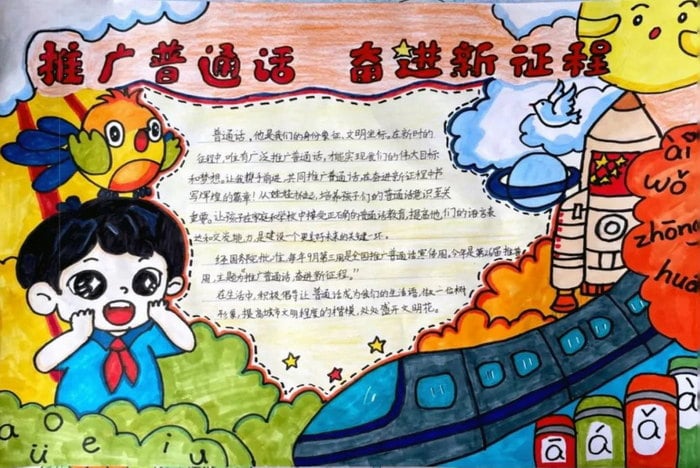 推广普通话 奋进新征程
普通话，他是我们的身份象征，文明坐标。在新时的
征程中，唯有广泛推广普通话，才能实现我们的伟大目标
和梦想。让我们携手前进，共同推广普通话，在奋进新征程中书
写辉煌的篇章！从娃娃抓起，培养孩子们的普通话意识至关
重要。让孩子在家庭和学校中接受正确的普通话教育，提高他们的语言表
达和交流能力，是建设一个更美好未来的关键一环。
经国务院批准，每年9月第三周是全国推广普通话宣传周，今年是第26届推普
周，主题为"推广普通话，奋进新征程。"
在生活中，积极倡导让普通话成为我们的生活语，做一台树
形象，提高城市文明程度的楷模，处处盛开文明花。
ài
wǒ
zhōng
huá
a o e i u
ü
ā á ǎ à